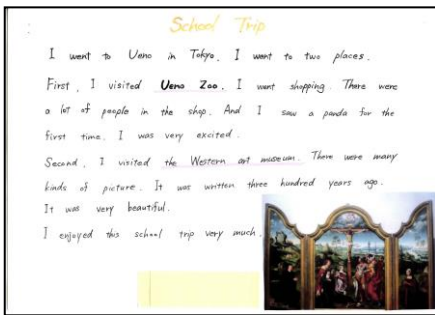 School Trip
I went to Ueno in Tokyo. I went to two places.
First, I visited Ueno Zoo. I went shopping. There were
a lot of people in the shop. And I saw a panda for the
first time. I was very excited.
Second, I visited the Western art museum. There were many
kinds of picture. It was written three hundred years ago.
It was very beautiful.
I enjoyed this school trip very much.